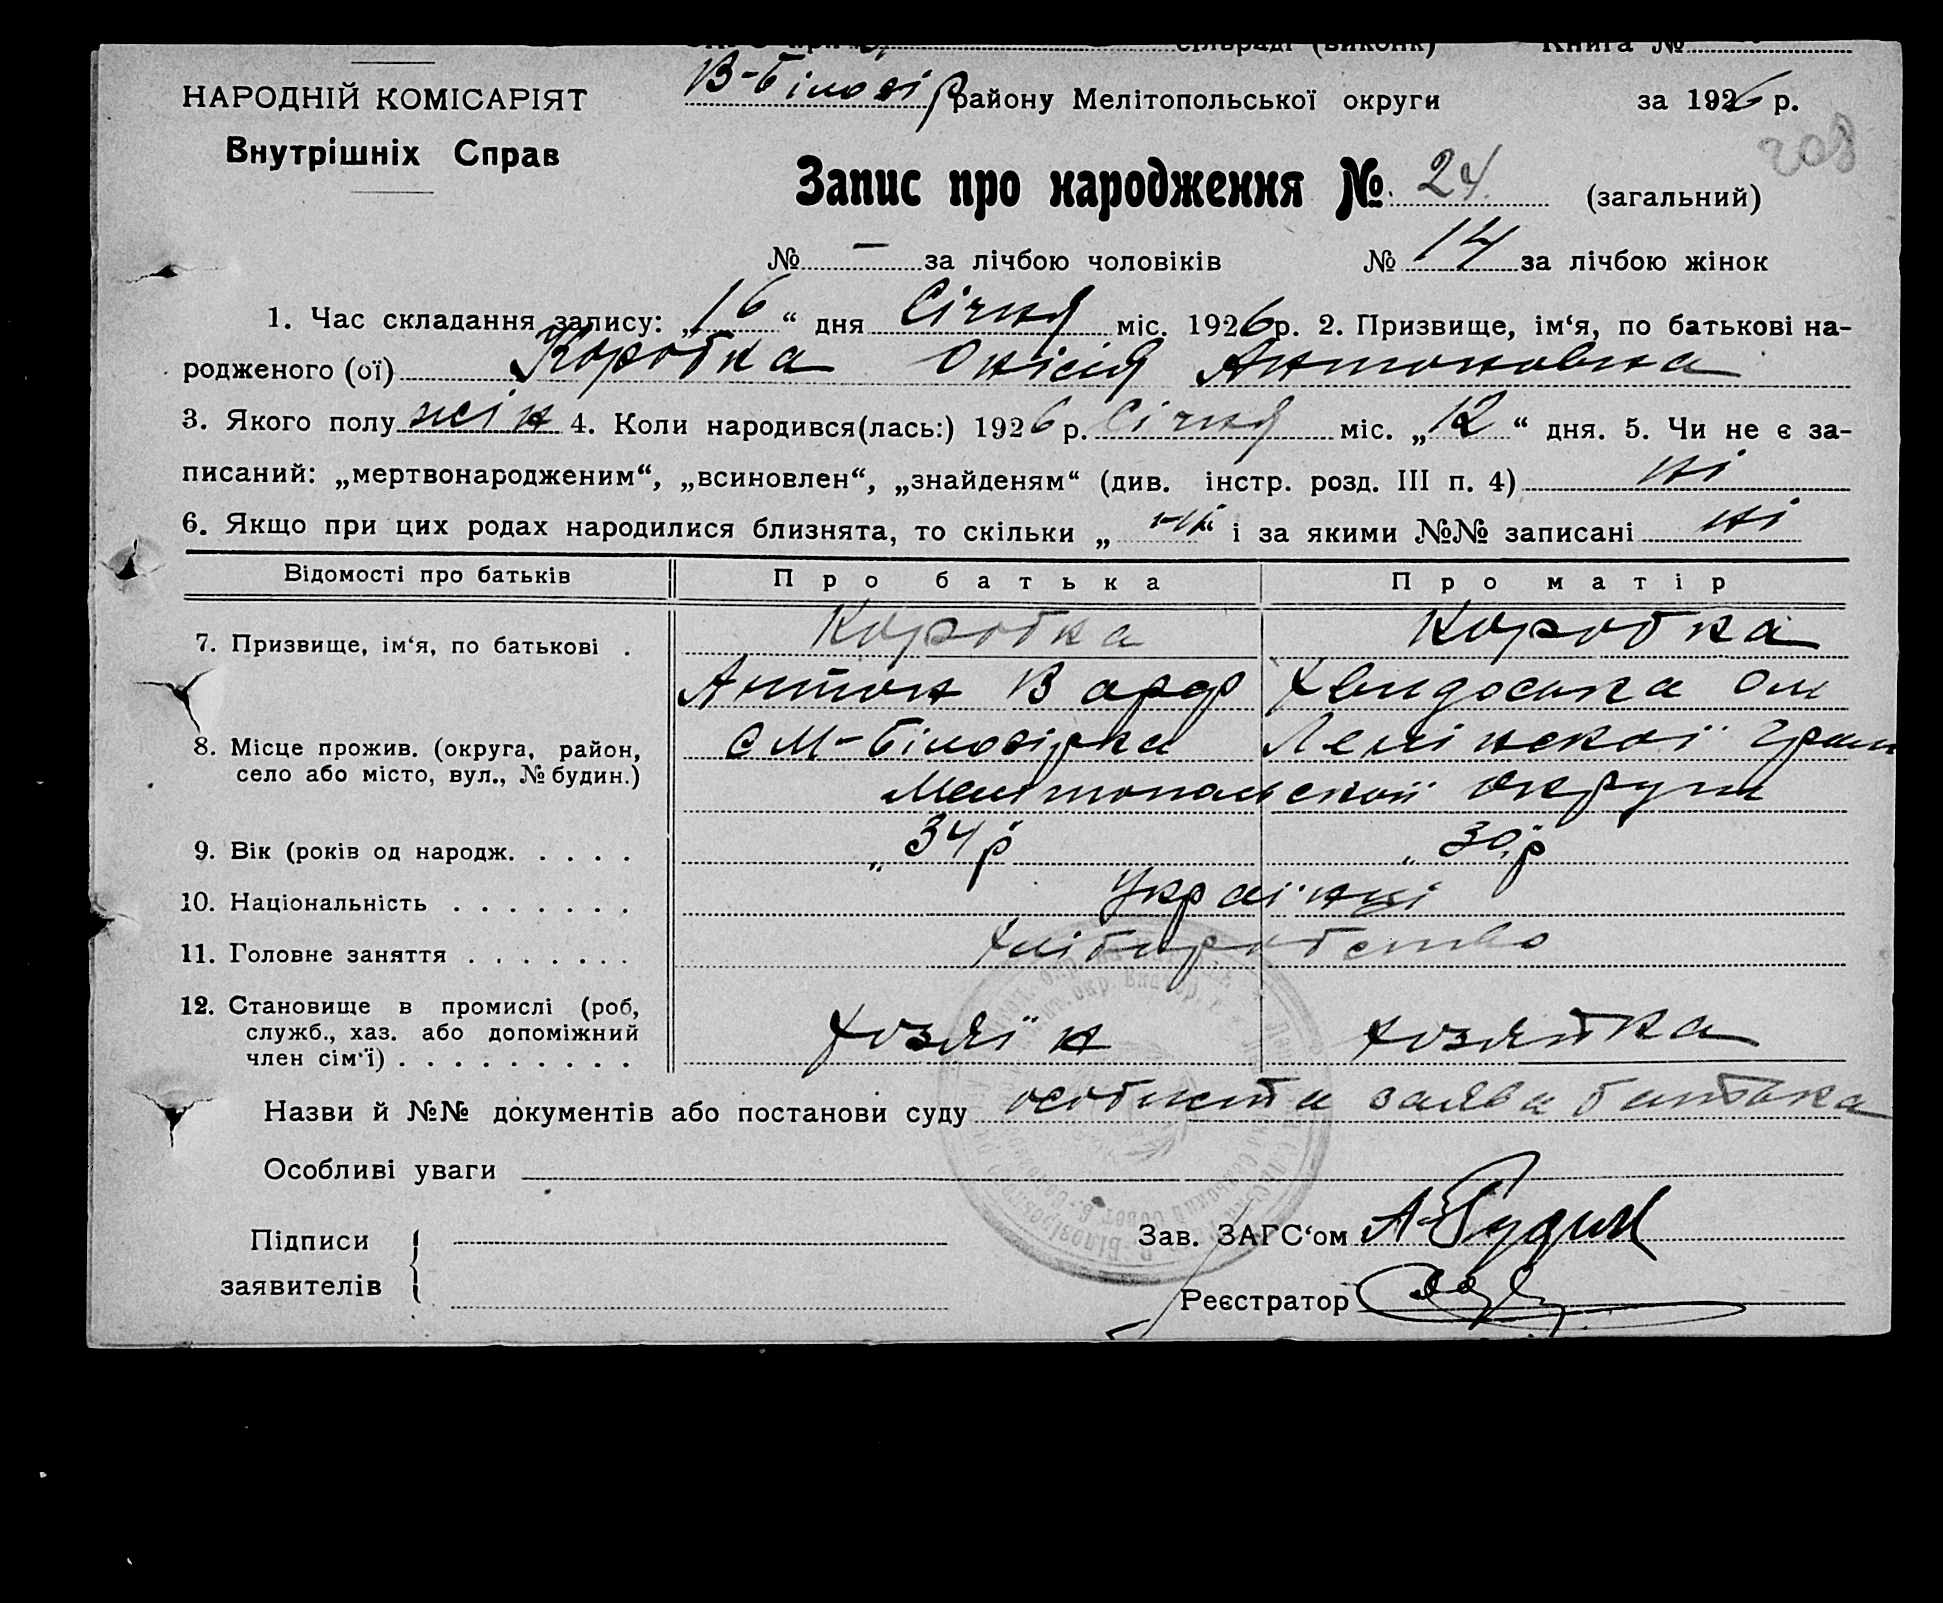 сільраді (виконк) Книга №
НАРОДНІЙ КОМІСАРІЯТ
Внутрішніх Справ
В-Білозір району Мелітопольської округи за 1926 р.
208
Запис про народження № 24 (загальний)
№ — за лічбою чоловіків № 14 за лічбою жінок
1. Час складання запису: „16“ дня Січня міс. 1926 р. 2. Призвище, ім‘я, по батькові на-
родженого (ої) Коробка Онісія Антоновна
3. Якого полу жін 4. Коли народився(лась:) 1926 р. Січня міс. „12“ дня. 5. Чи не є за-
писаний: „мертвонародженим“, „всиновлен“, „знайденям“ (див. інстр. розд. III п. 4) ні
6. Якщо при цих родах народилися близнята, то скільки „ні“ і за якими №№ записані ні
Відомості про батьків Про батька Про матір
7. Призвище, ім‘я, по батькові . Коробка Коробка
Антон Варф Хвидоська Ом
8. Місце прожив. (округа, район, с М-Білозірка Ленінскої
село або місто, вул., № будин.) Мелітопольскої округи
9. Вік (років од народж. . . . . „34 р „30 р
10. Національність . . . . . . . Українці
11. Головне заняття . . . . . . . Хліборобство
12. Становище в промислі (роб,
служб., хаз. або допоміжний Хозяїн Хозяйка
член сім‘ї) . . . . . . . . .
Назви й №№ документів або постанови суду особиста заява батька
Особливі уваги
Підписи
заявителів
Зав. ЗАГС‘ом
Реєстратор